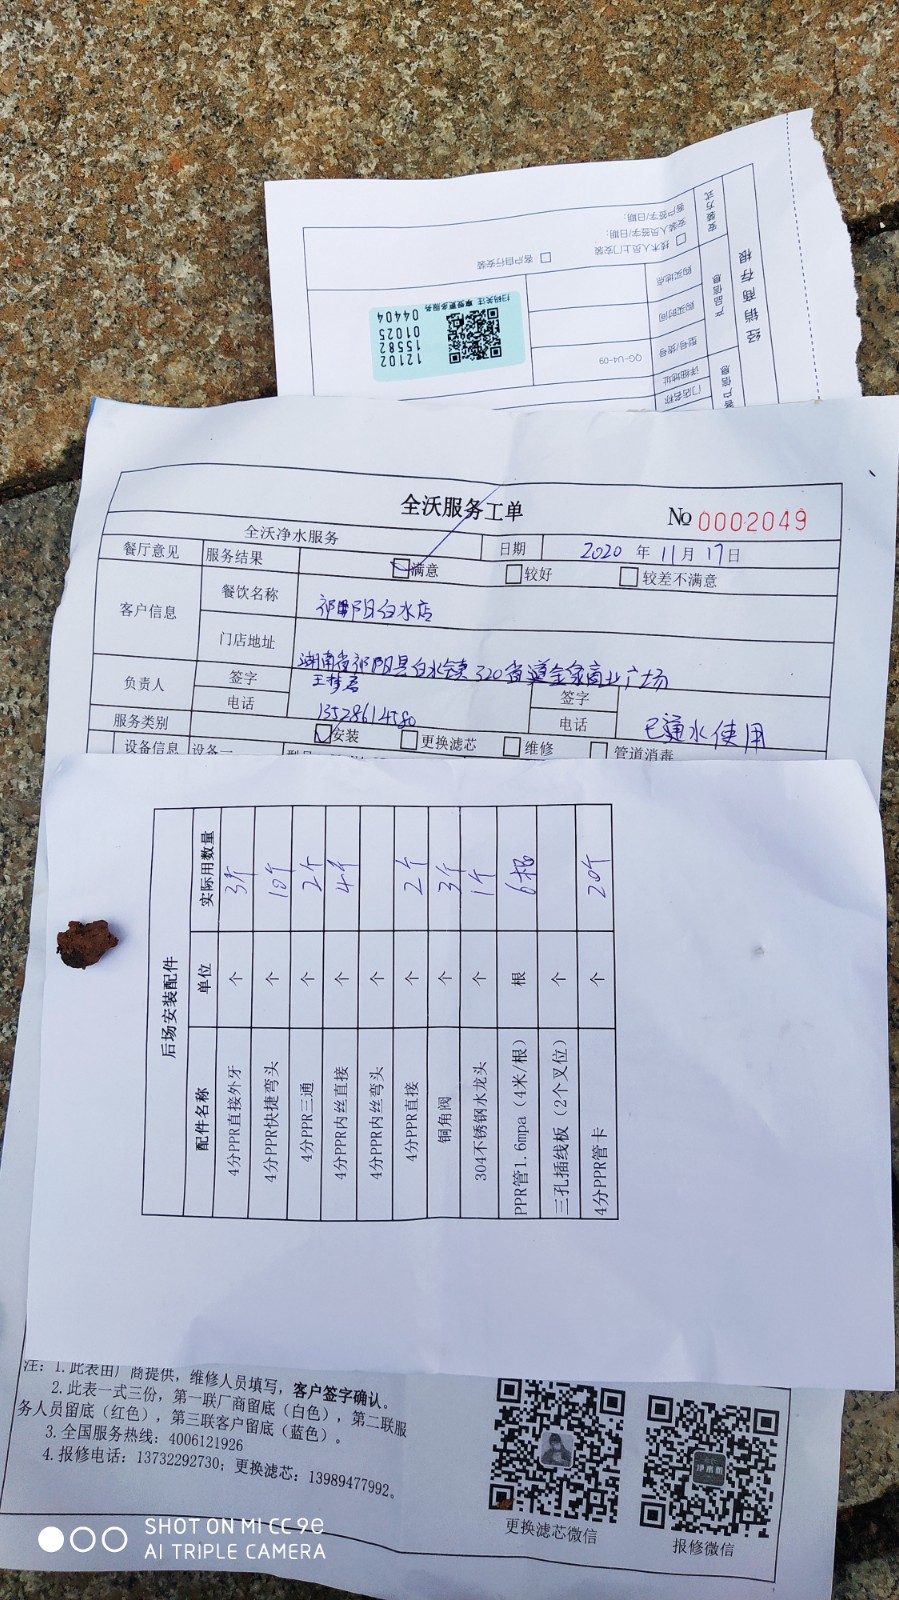 经销商存根
客户信息
门店名称
详细地址
产品信息
型号/货号
QG-U4-09
购买时间
购买地点
安装方式
技术人员上门安装
客户自行安装
安装人员签字/日期:
客户签字/日期:
12102
15582
01025
04404
扫码关注 尊享更多服务
全沃服务工单
No 0002049
全沃净水服务
日期 2020 年 11 月 17 日
餐厅意见 服务结果 满意 较好 较差不满意
客户信息 餐饮名称 祁阳白水店
门店地址 湖南省祁阳县白水镇320省道金象商业广场
负责人 签字 签字
电话 13528614580 电话 已通水使用
服务类别 安装 更换滤芯 维修 管道消毒
设备信息 设备一
后场安装配件
配件名称 单位 实际用数量
4分PPR直接外牙 个 3个
4分PPR快捷弯头 个 10个
4分PPR三通 个 2个
4分PPR内丝直接 个 4个
4分PPR内丝弯头 个
4分PPR直接 个 2个
铜角阀 个 3个
304不锈钢水龙头 个 1个
PPR管1.6mpa(4米/根) 根 6根
三孔插线板(2个叉位) 个
4分PPR管卡 个 20个
注: 1.此表由厂商提供, 维修人员填写, 客户签字确认。
2.此表一式三份, 第一联厂商留底(白色), 第二联服
务人员留底(红色), 第三联客户留底(蓝色)。
3.全国服务热线: 4006121926
4.报修电话: 13732292730; 更换滤芯: 13989477992。
更换滤芯微信
报修微信
SHOT ON MI CC 9e
AI TRIPLE CAMERA